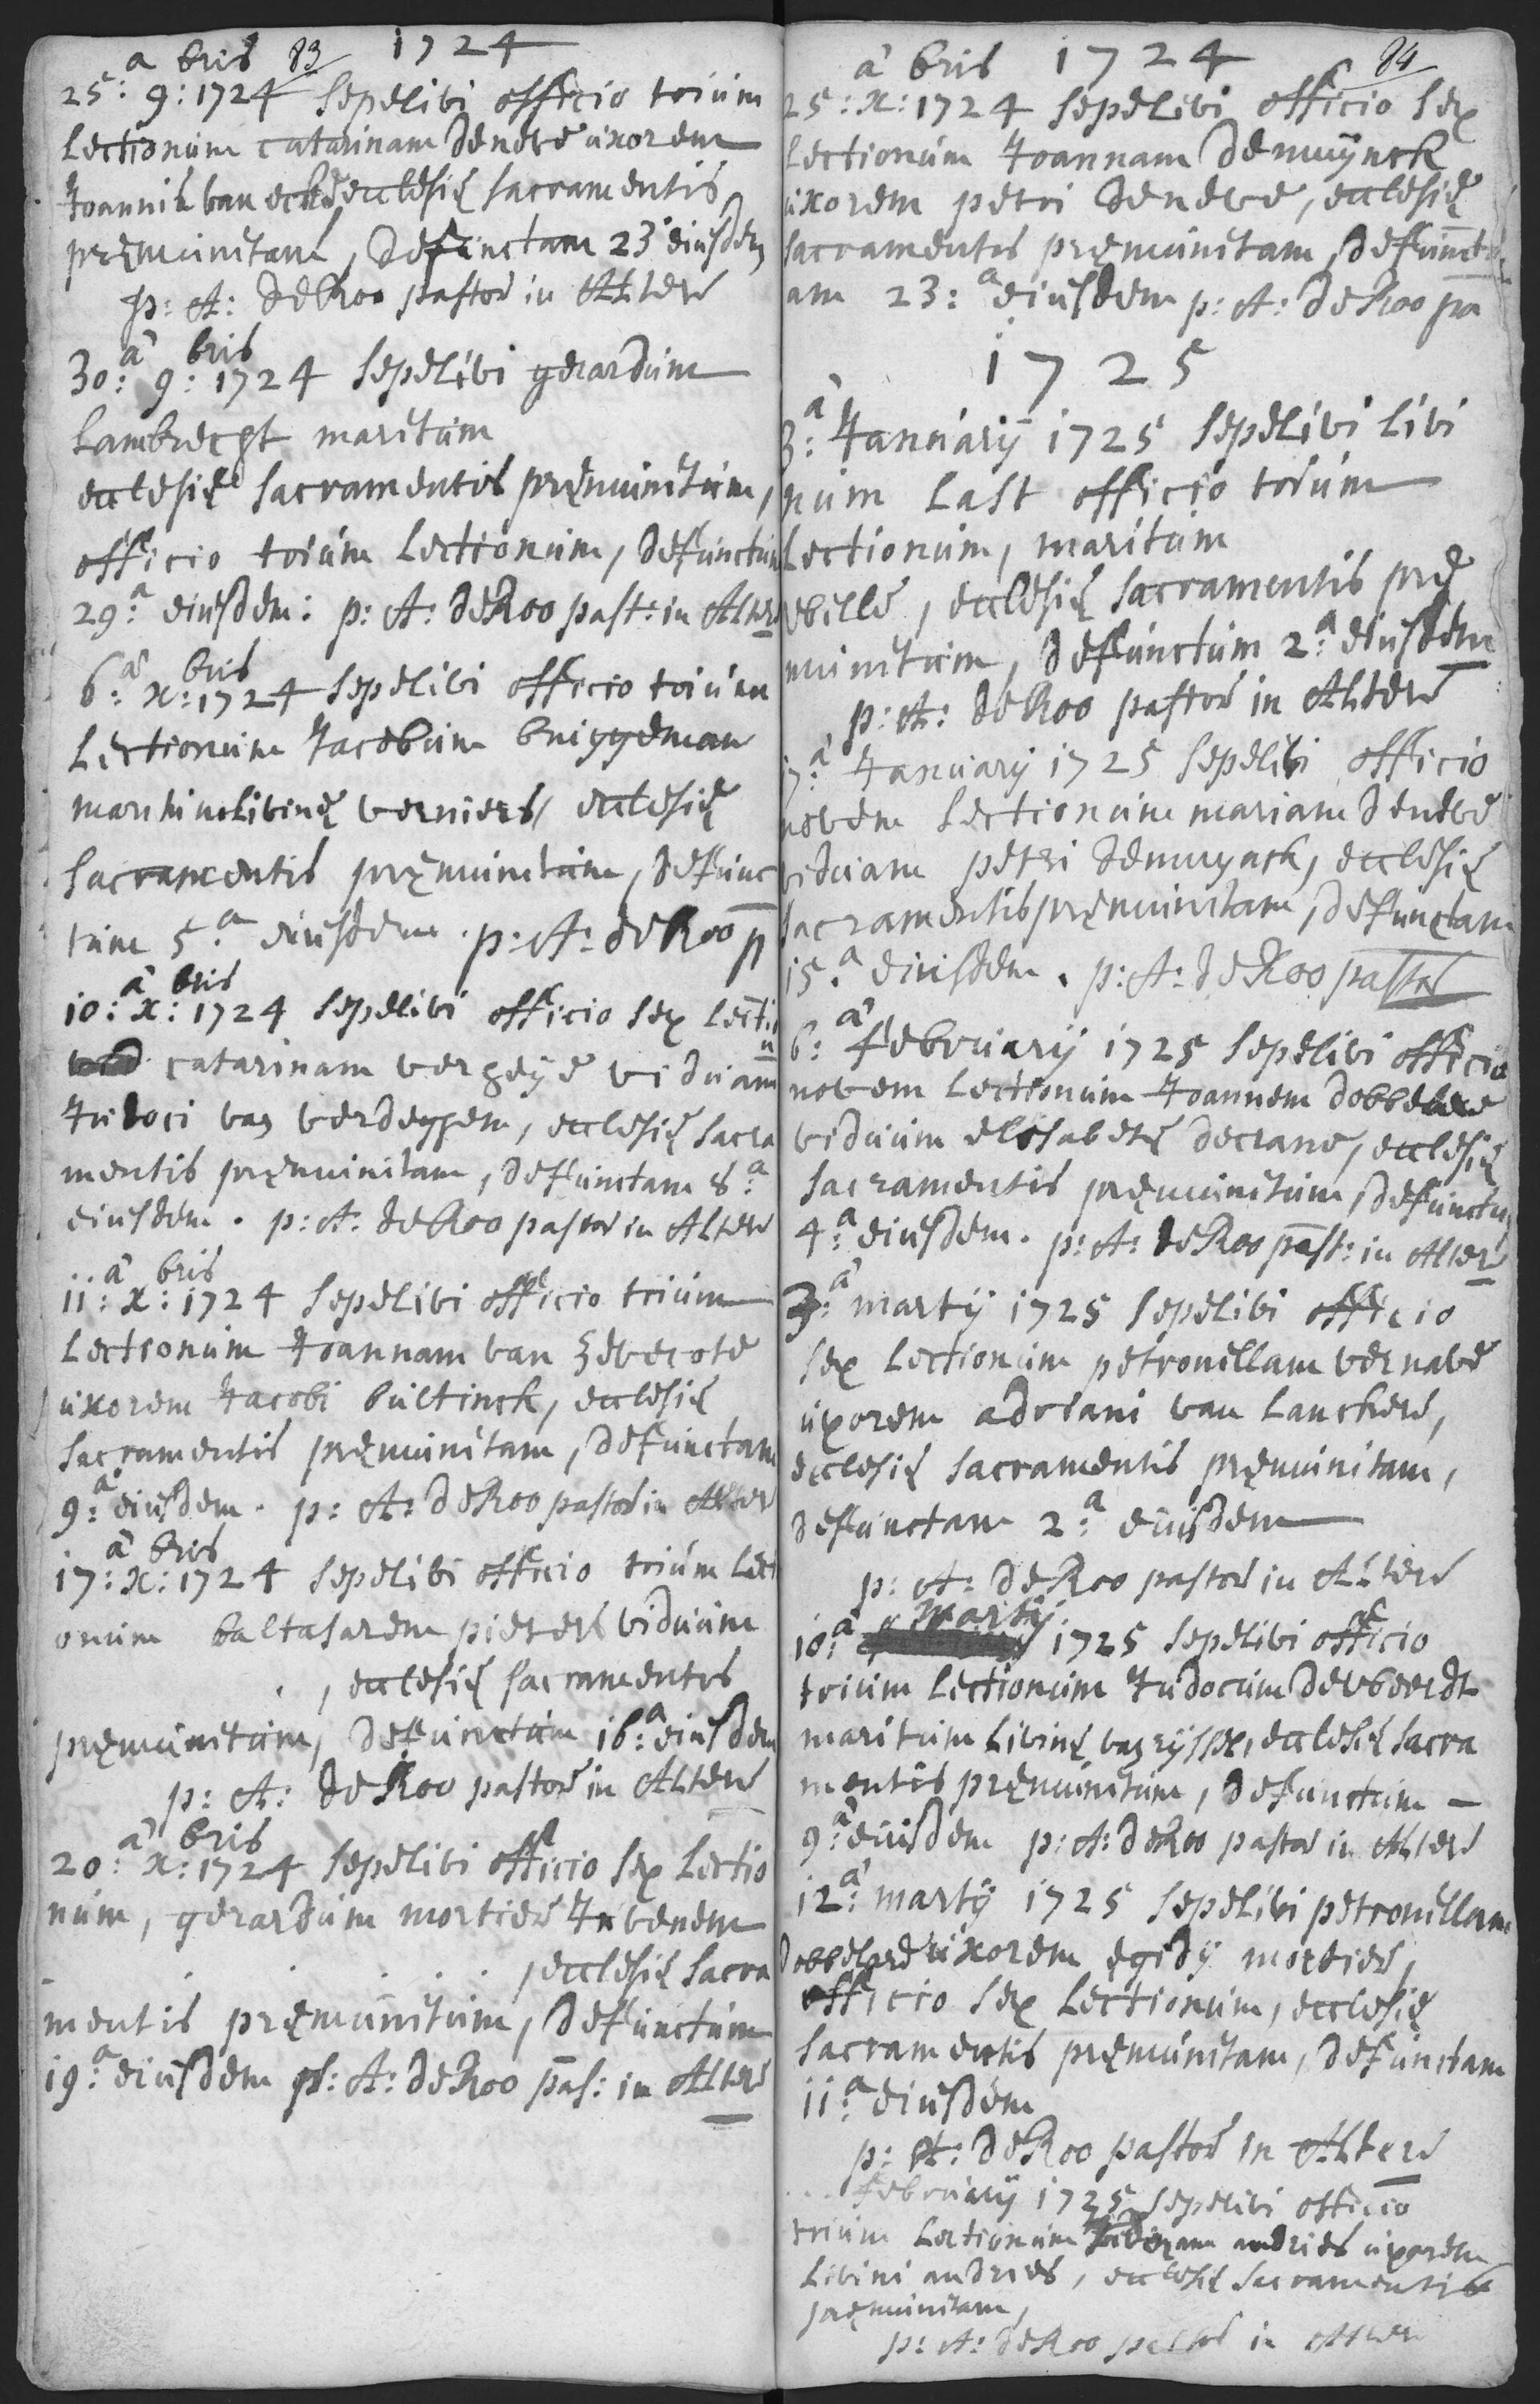 83 1724
25:a 9:bris 1724 sepelivi officio trium
Lectionum catarinam de neve uxorem
Joannis van ecke ecclesię sacramentis
pręmunitam, defunctam 23 eiusdem
p: A: de Roo pastor in Alter
30:a 9:bris 1724 sepelivi gerardum
Lambrecht maritum
ecclesię sacramentis pręmunitum,
officio trium Lectionum, defunctum
29:a eiusdem: p: A: de Roo past: in Alter
6:a x:bris 1724 sepelivi officio trium
Lectionum Jacobum bruggeman
maritum Livinę verniers, ecclesię
sacramentis pręmunitum, defunc
tum 5:a eiusdem. p: A: de Roo p
10:a x:bris 1724 sepelivi officio sex Lecti
catarinam verheÿe viduam
Judoci van verdeghem, ecclesię sacra
mentis pręmunitam, defunctam 8:a
eiusdem. p: A: de Roo pastor in Alter
11:a x:bris 1724 sepelivi officio trium
Lectionum Joannam van zevecote
uxorem Jacobi bultinck, ecclesię
sacramentis pręmunitam, defunctam
9:a eiusdem. p: A: de Roo pastor in Alter
17:a x:bris 1724 sepelivi officio trium Lecti
onum baltasarem pieters viduum
, ecclesię sacramentis
pręmunitum, defunctum 16:a eiusdem
p: A: de Roo pastor in Alter
20:a x:bris 1724 sepelivi officio sex Lectio
num, gerardum mortier Juvenem
, ecclesię sacra
mentis pręmunitum, defunctum
19:a eiusdem p: A: de Roo pas: in Alter
1724 84
25:a x:bris 1724 sepelivi officio sex
Lectionum Joannam de muÿnck
uxorem petri de neve, ecclesię
sacramentis pręmunitam, defunct
am 23:a eiusdem p: A: de Roo pa
1725
3:a Januarÿ 1725 sepelivi Livi
num Last officio trium
Lectionum, maritum
eville, ecclesię sacramentis pre
munitum, defunctum 2:a eiusdem
p: A: de Roo pastor in Alter
17:a Januarÿ 1725 sepelivi officio
novem Lectionum mariam de neve
viduam petri de muynck, ecclesię
sacramentis pręmunitam, defunctam
15:a eiusdem. p: A: de Roo pastor
6:a februarÿ 1725 sepelivi officio
novem Lectionum Joannem dobbelare
viduum elisabetę de crane, ecclesię
sacramentis pręmunitum, defunctum
4:a eiusdem. p: A: de Roo past: in Alter
3:a martÿ 1725 sepelivi officio
sex Lectionum petronillam vernave
uxorem adriani van Lanckere,
ecclesię sacramentis pręmunitam,
defunctam 2:a eiusdem
p: A: de Roo pastor in Alter
10:a martÿ 1725 sepelivi officio
trium Lectionum Judocum de vbeerdt
maritum Livinę van rÿssel, ecclesię sacra
mentis pręmunitum, defunctum
9:a eiusdem p: A: de Roo pastor in Alter
12:a martÿ 1725 sepelivi petronillam
dobbelare uxorem ęgidÿ mortier,
officio sex Lectionum, ecclesię
sacramentis pręmunitam, defunctam
11:a eiusdem
p: A: de Roo pastor in Alter
februarÿ 1725 sepelivi officio
trium Lectionum andries uxorem
Livini andries, ecclesię sacramentis
pręmunitam,
p: A: de Roo pastor in Alter